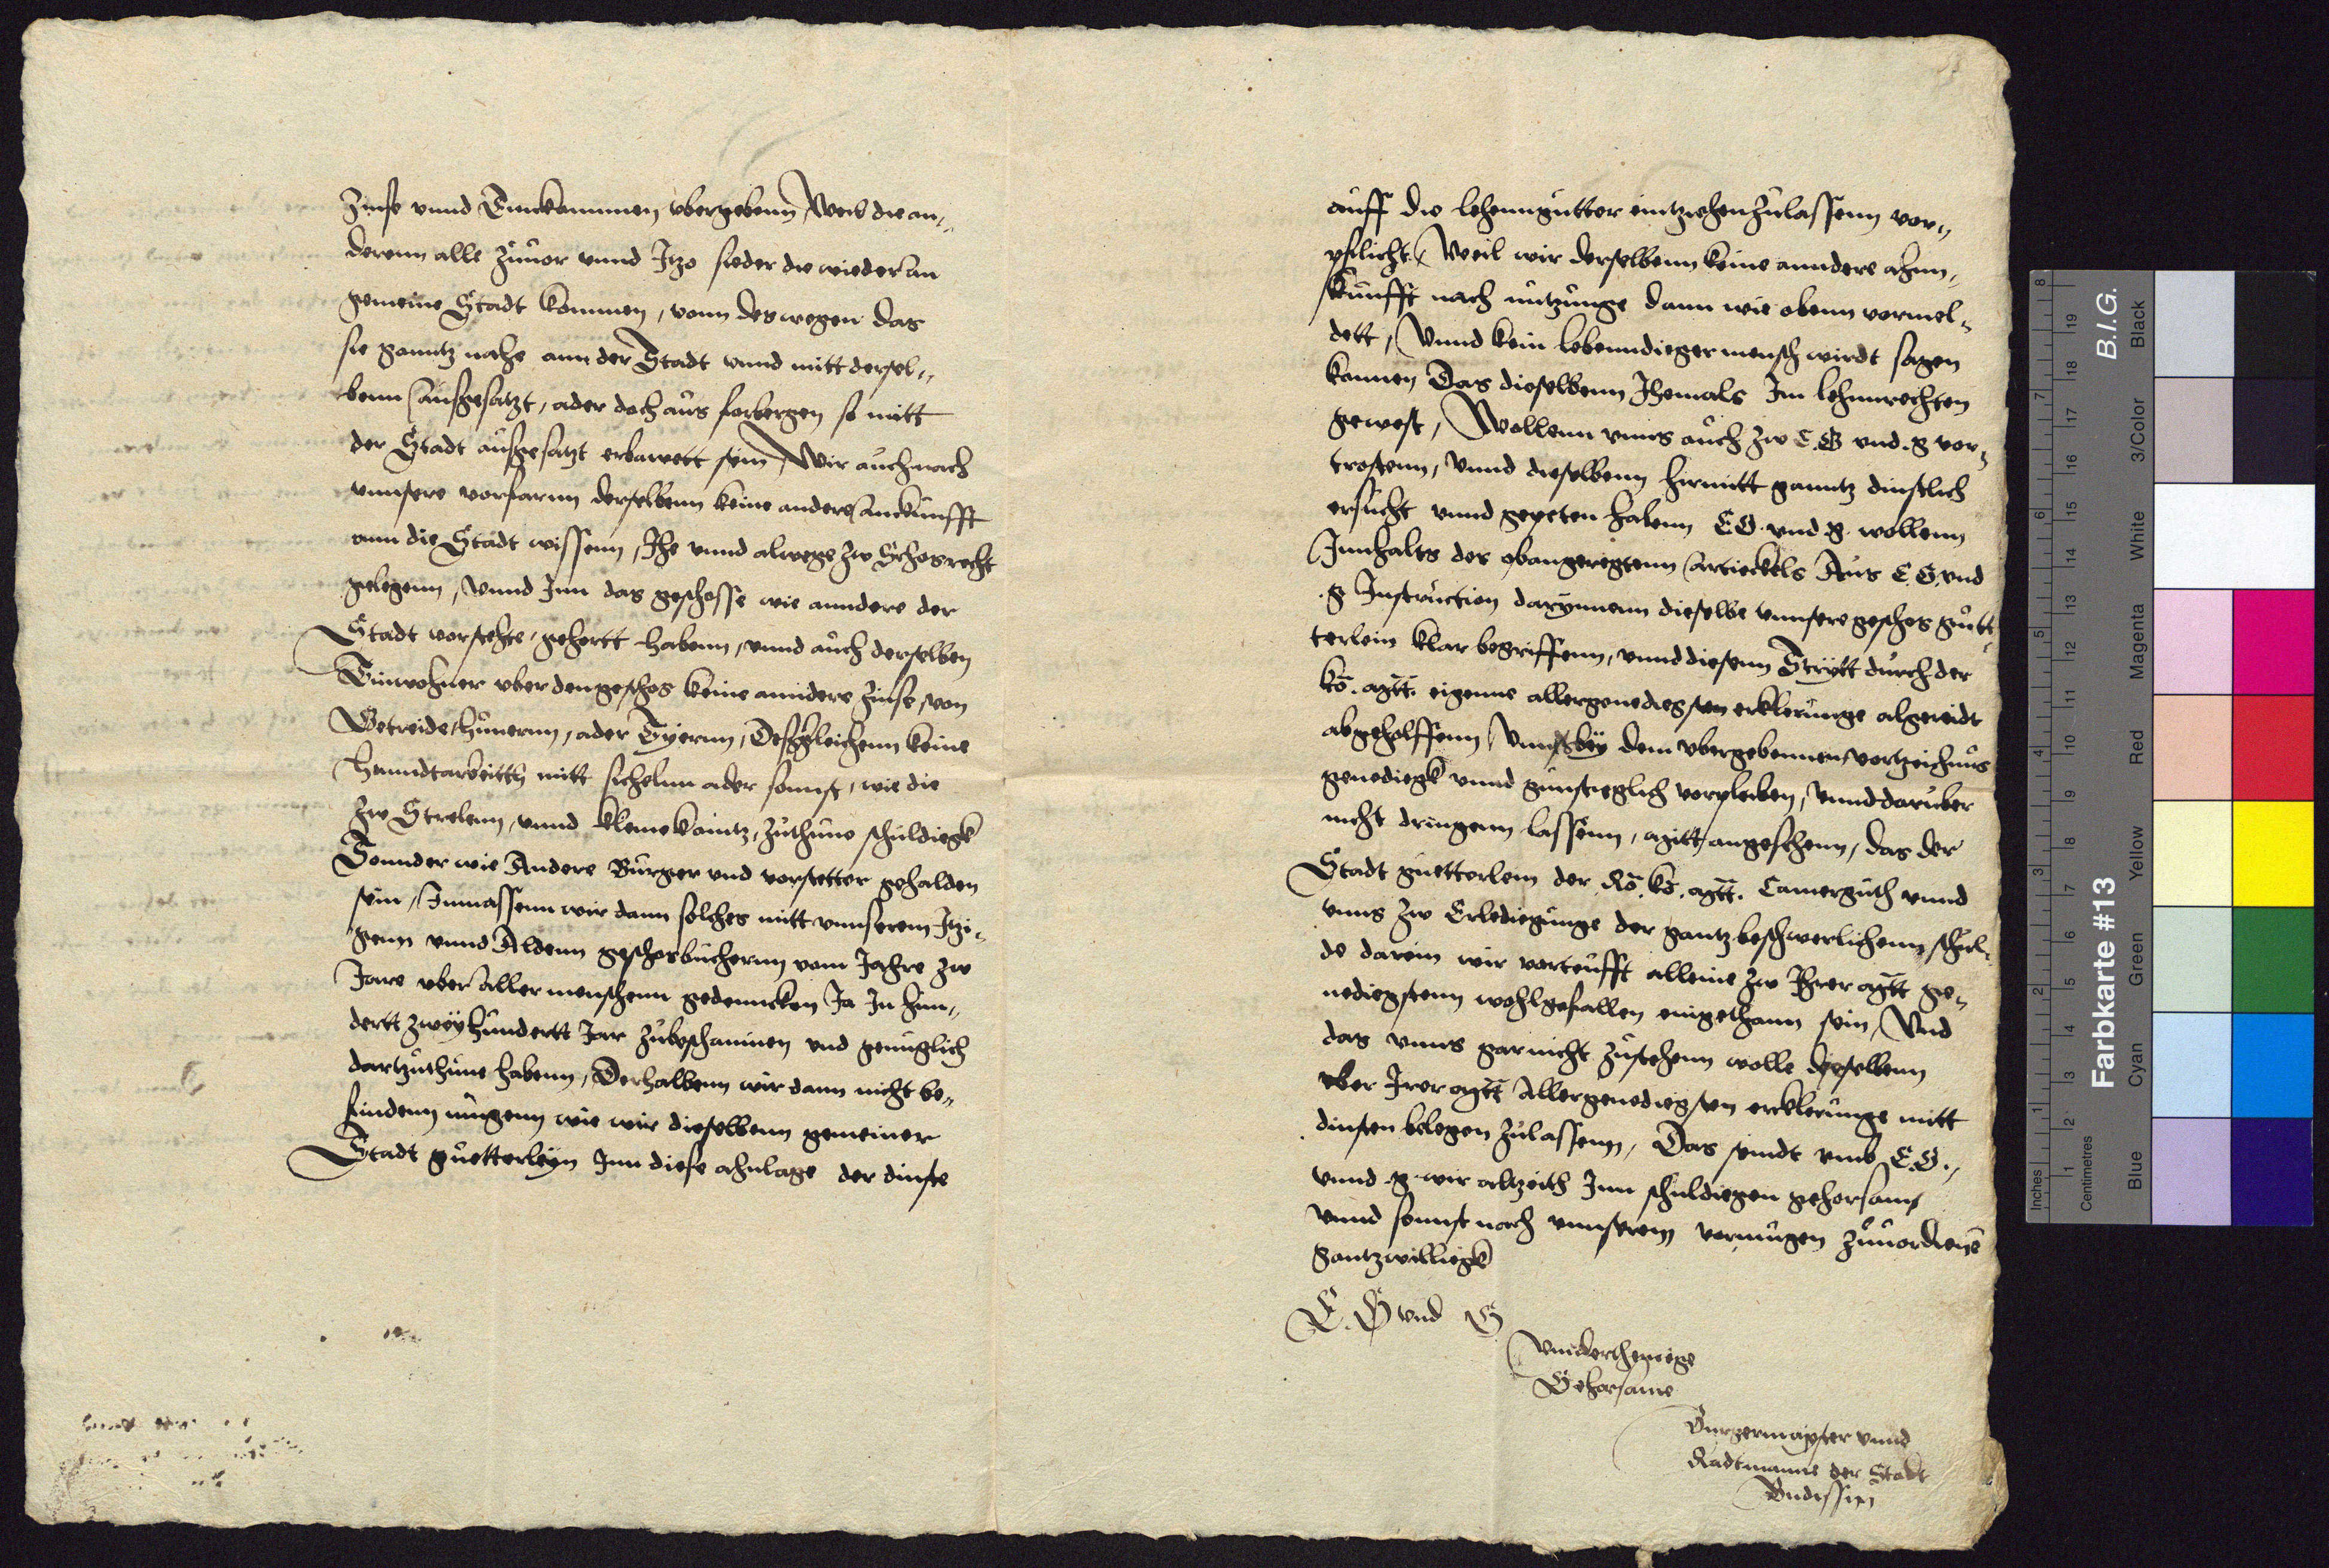 Zinse vnnd Einckommen vbergebenn, Weil die an„
derenn alle zuuor vnnd Itzo sieder die wieder an
gemeine Stadt kommen, vonn deswegen das
sie ganntz nahe ann der Stadt vnnd mitt dersel„
benn ausgesatzt, ader doch aus forbergen so mitt
der Stadt ausgesatzt erbawett sein, Wir auch nach
vnnsere vorfarnn derselbenn keine andere anckunfft
ann die Stadt wissenn, Ihe vnnd alwege zw Schosrecht
gelegenn, vnnd Inn das geschosse wie anndere der
Stadt vorstehte, gehortt habenn, vnnd auch derselben
Einwohner vber den geschos keine anndere Zinse, von
Getreide, hunernn, ader Eyernn, Desgleichenn keine
Hanndtarbeitth mitt sichelnn ader sonnst, wie die
zw Strelenn, vnnd kleine kainitz, zuthune schuldiegk
Sonnder wie Andere Burger vnd vorstetter gehalden
sein, Inmassenn wir dann solches mitt vnnserem Itzi„
genn vnnd Aldenn geschosbuchernn vom Jahre zw
Jare vber aller menschenn gedenncken Ja In hun„
dertt zweyhundertt Jar zubescheinen vnd genuglich
dartzuthune habenn, Derhalbenn wir dann nicht be„
findenn mugenn wie wir dieselbenn gemeiner
Stadt guetterleyn Inn diese ahnlage der dinste
auff die lehenngutter eintziehen zulassenn vor„
pflicht, Weil wir derselbenn keine anndere ahnn„
kunfft nach nutzunge dann wie obenn vormel„
dett, Vnnd kein lebenndieger mensch wirdt sagen
konnen Das dieselbenn Ihemals Im lehnnrechten
gewest, Wollenn vnns auch zw E.G vnd .g vor„
trostenn, Vnnd dieselbenn hirmitt ganntz dinstlich
ersucht vnnd gepeten habenn E G. vnd g. wollenn
Innhalts des obangeregtenn artieckels Aus E.G. vnd
.g Instruction darynnenn dieselbe vnnsere geschos gutt„
terlein klar begriffenn, vnnd diesenn Strytt durch der
kö. Mtt. eigenne allergenedigsten erklerunge algereidt
abgeholffenn, Vnns bey dem vbergebennen vortzeichnus
genediegk vnnd gunstieglich vorpleiben, vnnd daruber
nicht dringenn lassenn, Mitt angesehenn, das der
Stadt guetterlein der Rö. kö. Mtt. Camerguth vnnd
vnns zw Erledigunge der gantz beschwerlichenn schul„
de darein wir vorteufft alleine zw Ihrer Mtt ge„
nediegstenn wohlgefallen eingethann sein, Vnd
das vnns gar nicht zustehenn wolle dieselbenn
vber Irer Mtt Allergenediegsten erklerunge mitt
dinsten belegen zulassenn, Das seindt vmb E.G.,
vnnd .g. wir altzeith Inn schuldiegen gehorsam
vnnd sonnst nach vnnserem vermugen zuuordiene
gantzwilliegk
E. G vnd G
Vnnderthenige
Gehorsame
Burgermaister vnnd
Radtmanne der Stadt
Budissin
Inches
Centimetres
Farbkarte #13
B.I.G.
Blue
Cyan
Green
Yellow
Red
Magenta
White
3/Color
Black